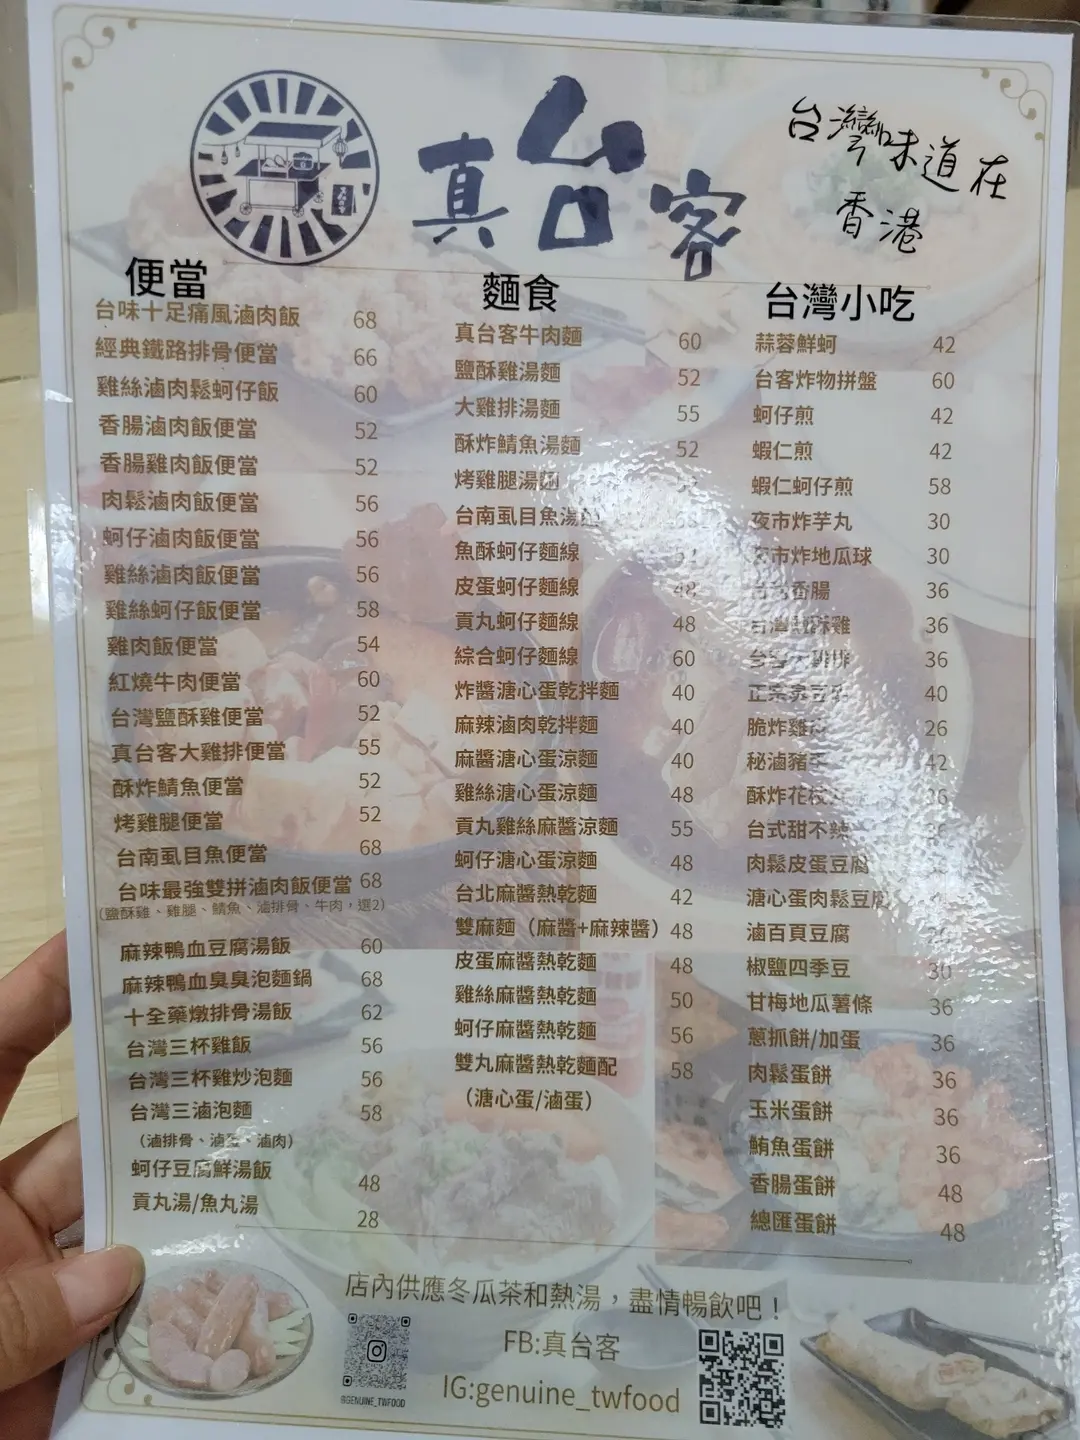 真台客
台灣味道在
香港
便當
台味十足痛風滷肉飯 68
經典鐵路排骨便當 66
雞絲滷肉鬆蚵仔飯 60
香腸滷肉飯便當 52
香腸雞肉飯便當 52
肉鬆滷肉飯便當 56
蚵仔滷肉飯便當 56
雞絲滷肉飯便當 56
雞絲蚵仔飯便當 58
雞肉飯便當 54
紅燒牛肉便當 60
台灣鹽酥雞便當 52
真台客大雞排便當 55
酥炸鯖魚便當 52
烤雞腿便當 52
台南虱目魚便當 68
台味最強雙拼滷肉飯便當 68
(鹽酥雞、雞腿、鯖魚、滷排骨、牛肉，選2)
麻辣鴨血豆腐湯飯 60
麻辣鴨血臭臭泡麵鍋 68
十全藥燉排骨湯飯 62
台灣三杯雞飯 56
台灣三杯雞炒泡麵 56
台灣三滷泡麵 58
(滷排骨、滷蛋、滷肉)
蚵仔豆腐鮮湯飯 48
貢丸湯/魚丸湯 28
麵食
真台客牛肉麵 60
鹽酥雞湯麵 52
大雞排湯麵 55
酥炸鯖魚湯麵 52
烤雞腿湯麵
台南虱目魚湯
魚酥蚵仔麵線
皮蛋蚵仔麵線 48
貢丸蚵仔麵線 48
綜合蚵仔麵線 60
炸醬溏心蛋乾拌麵 40
麻辣滷肉乾拌麵 40
麻醬溏心蛋涼麵 40
雞絲溏心蛋涼麵 48
貢丸雞絲麻醬涼麵 55
蚵仔溏心蛋涼麵 48
台北麻醬熱乾麵 42
雙麻麵（麻醬+麻辣醬）48
皮蛋麻醬熱乾麵 48
雞絲麻醬熱乾麵 50
蚵仔麻醬熱乾麵 56
雙丸麻醬熱乾麵配 58
（溏心蛋/滷蛋）
台灣小吃
蒜蓉鮮蚵 42
台客炸物拼盤 60
蚵仔煎 42
蝦仁煎 42
蝦仁蚵仔煎 58
夜市炸芋丸 30
夜市炸地瓜球 30
香腸 36
台灣鹽酥雞 36
36
40
脆炸雞 26
秘滷豬 42
酥炸花枝 36
台式甜不辣
肉鬆皮蛋豆腐
溏心蛋肉鬆豆腐
滷百頁豆腐
椒鹽四季豆 30
甘梅地瓜薯條 36
蔥抓餅/加蛋 36
肉鬆蛋餅 36
玉米蛋餅 36
鮪魚蛋餅 36
香腸蛋餅 48
總匯蛋餅 48
店內供應冬瓜茶和熱湯，盡情暢飲吧！
FB:真台客
IG:genuine_twfood
@GENUINE_TWFOOD